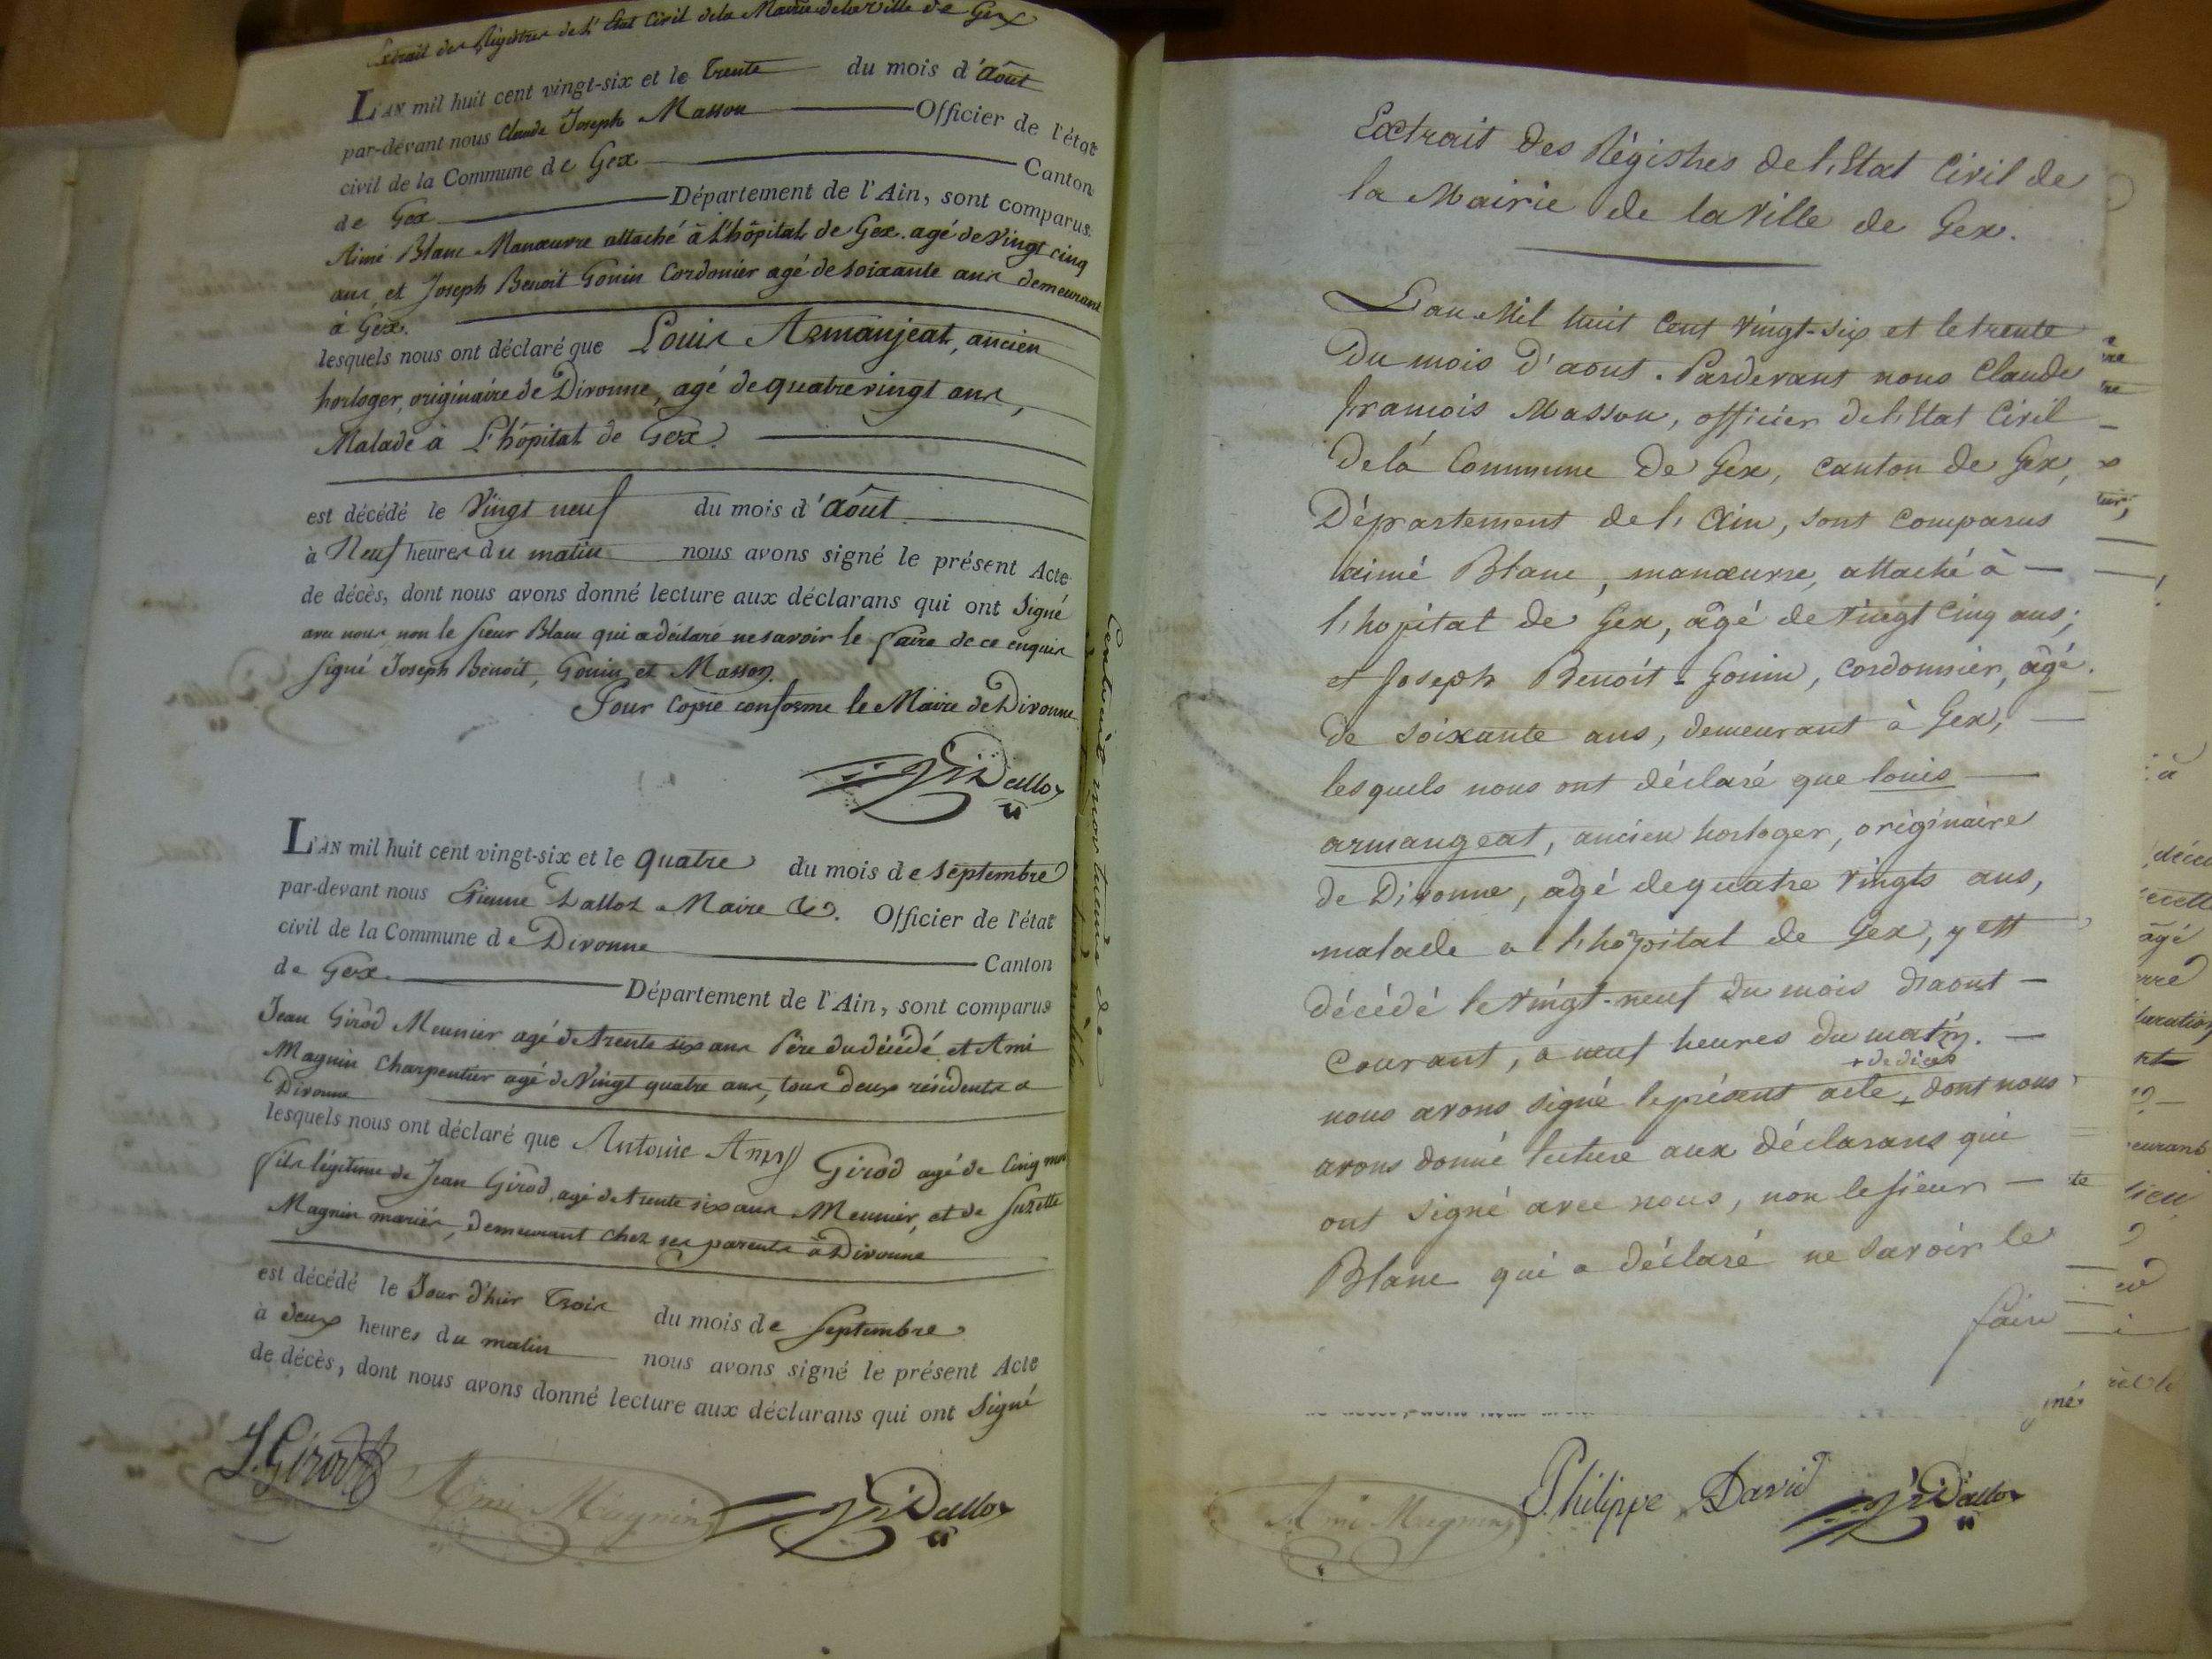 Extrait des Régistres de l'Etat Civil de la Mairie de la ville de Gex
L'AN mil huit cent vingt-six et le trente du mois d'Août
par-devant nous Claude Joseph Masson Officier de l'état
civil de la Commune de Gex Canton
de Gex Département de l'Ain, sont comparus
Aimé Blanc Manœuvre attaché à l'hôpital de Gex. agé de Vingt cinq
ans, et Joseph Benoit Gonin Cordonier agé de soixante ans demeurant
à Gex.
lesquels nous ont déclaré que Louis Armanjeat, ancien
horloger, originaire de Divonne, agé de quatre vingt ans,
Malade à L'hôpital de Gex.
est décédé le Vingt neuf du mois d'Août
à Neuf heures du matin nous avons signé le présent Acte
de décès, dont nous avons donné lecture aux déclarans qui ont Signé
avec nous non le sieur Blanc qui a déclaré ne savoir le faire de ce enquis
signé Joseph Benoit, Gonin et Masson.
Pour Copie conforme le Maire de Divonne
Dalloz
L'AN mil huit cent vingt-six et le quatre du mois de septembre
par-devant nous Etienne Dalloz Maire &. Officier de l'état
civil de la Commune de Divonne Canton
de Gex. Département de l'Ain, sont comparus
Jean Girod Meunier agé de trente six ans Père du décédé et Ami
Magnin Charpentier agé de Vingt quatre ans, tous deux résidents a
Divonne
lesquels nous ont déclaré que Antoine Girod agé de Cinq mois
fils légitime de Jean Girod, agé de trente six ans Meunier, et de Suzette
Magnin mariés, demeurant chez ses parents à Divonne
est décédé le Jour d'hier Trois du mois de septembre
à deux heures du matin nous avons signé le présent Acte
de décès, dont nous avons donné lecture aux déclarans qui ont Signé
J. Girod Ami Magnin Dalloz
Extrait des Régistres de l'Etat Civil de
la Mairie de la Ville de Gex.
L'an Mil huit Cent Vingt-Six et le trente
Du mois D'aout. Pardevant nous Claude
françois Masson, officier de l'Etat Civil
De la Commune De Gex, canton de Gex,
Département de l'Ain, sont comparus
aimé Blanc, manœuvre, attaché à
l'hopital de Gex, âgé de Vingt cinq ans;
et Joseph Benoit-Gonin, cordonnier, âgé
de soixante ans, demeurant à Gex,
lesquels nous ont déclaré que louis
armangeat, ancien horloger, originaire
de Divonne, âgé de quatre Vingts ans,
malade a l'hôpital de Gex, y est
Décédé le Vingt-neuf Du mois d'aout
Courant, a neuf heures Du matin.
+ de décès
nous avons signé le présent acte + dont nous
avons donné lecture aux déclarans qui
ont signé avec nous, non le sieur
Blanc qui a déclaré ne savoir le
faire
gné
Ami Magnin Philippe David Dalloz